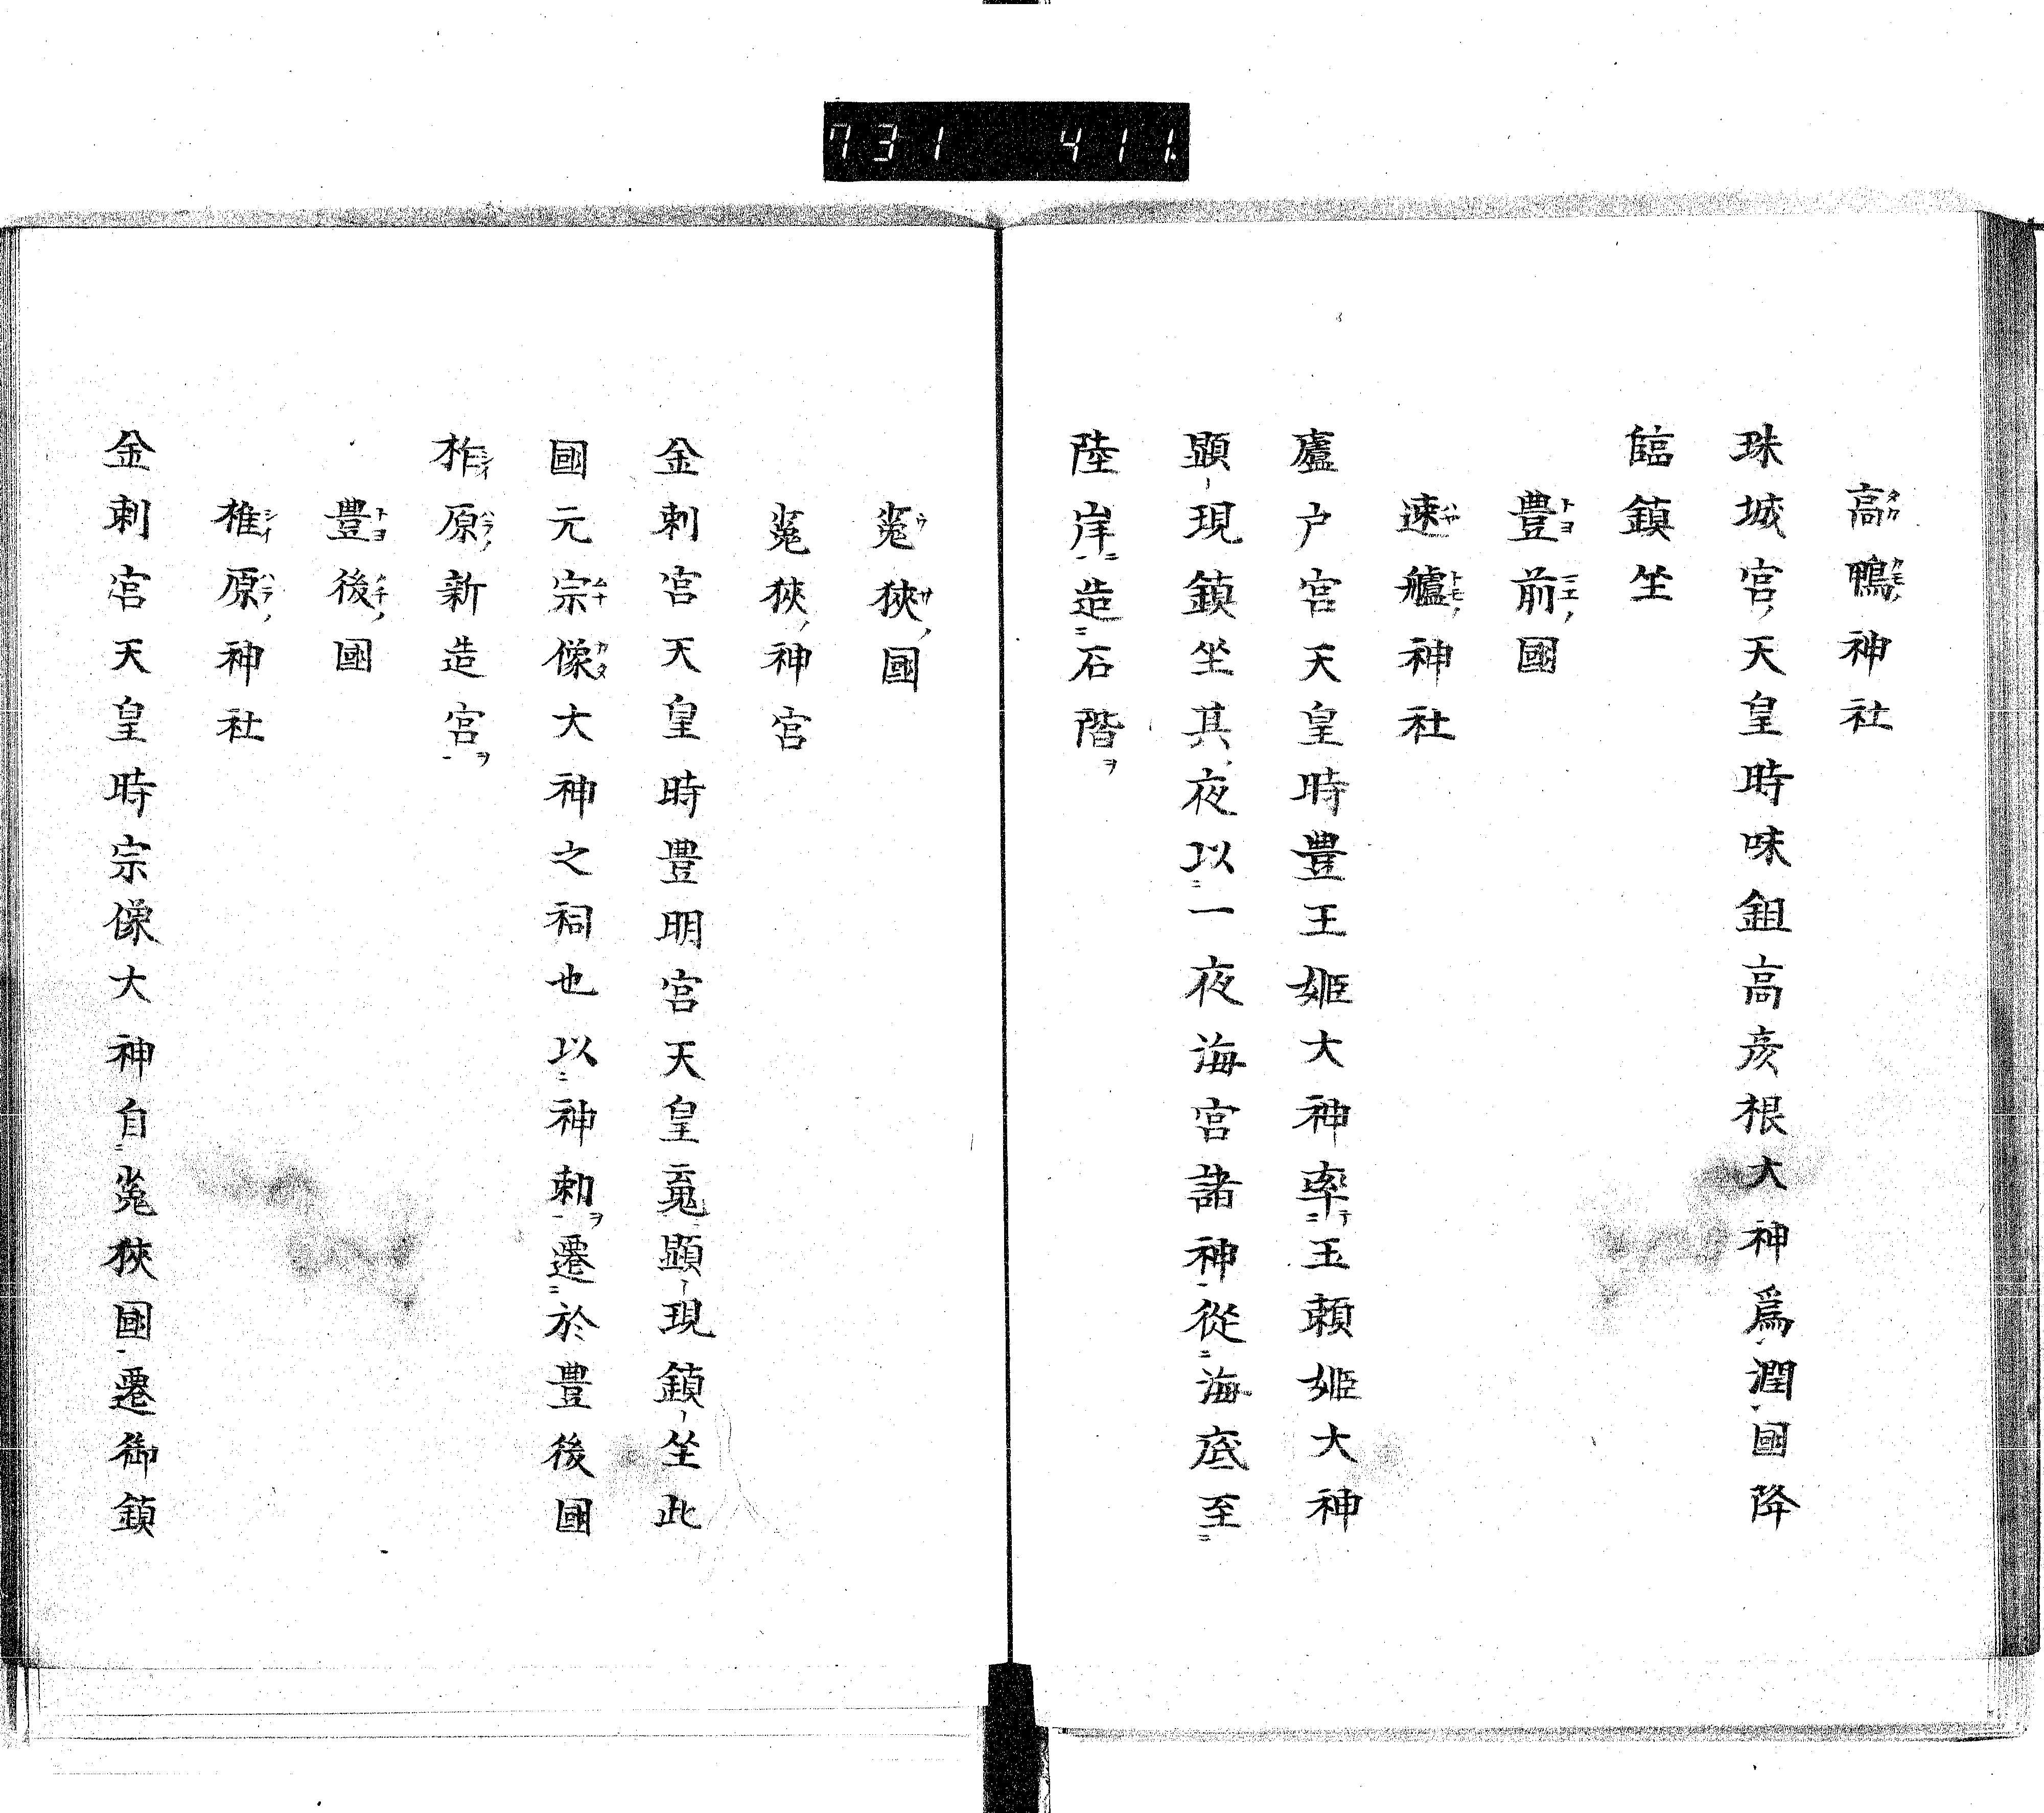 731 411
高鴨神社
珠城宮天皇時味鉏高彦根大神爲潤國降
臨鎮坐
豊前國
速艫神社
廬戸宮天皇時豊王姫大神率玉頼姫大神
顕現鎮坐其夜以一夜海宮諸神從海底至
陸岸造石階
菟狹國
菟狹神宮
金刺宮天皇時豊明宮天皇竟顕現鎮坐此
國元宗像大神之祠也以神勅遷於豊後國
柞原新造宮
豊後國
椎原神社
金刺宮天皇時宗像大神自菟狹國遷御鎮